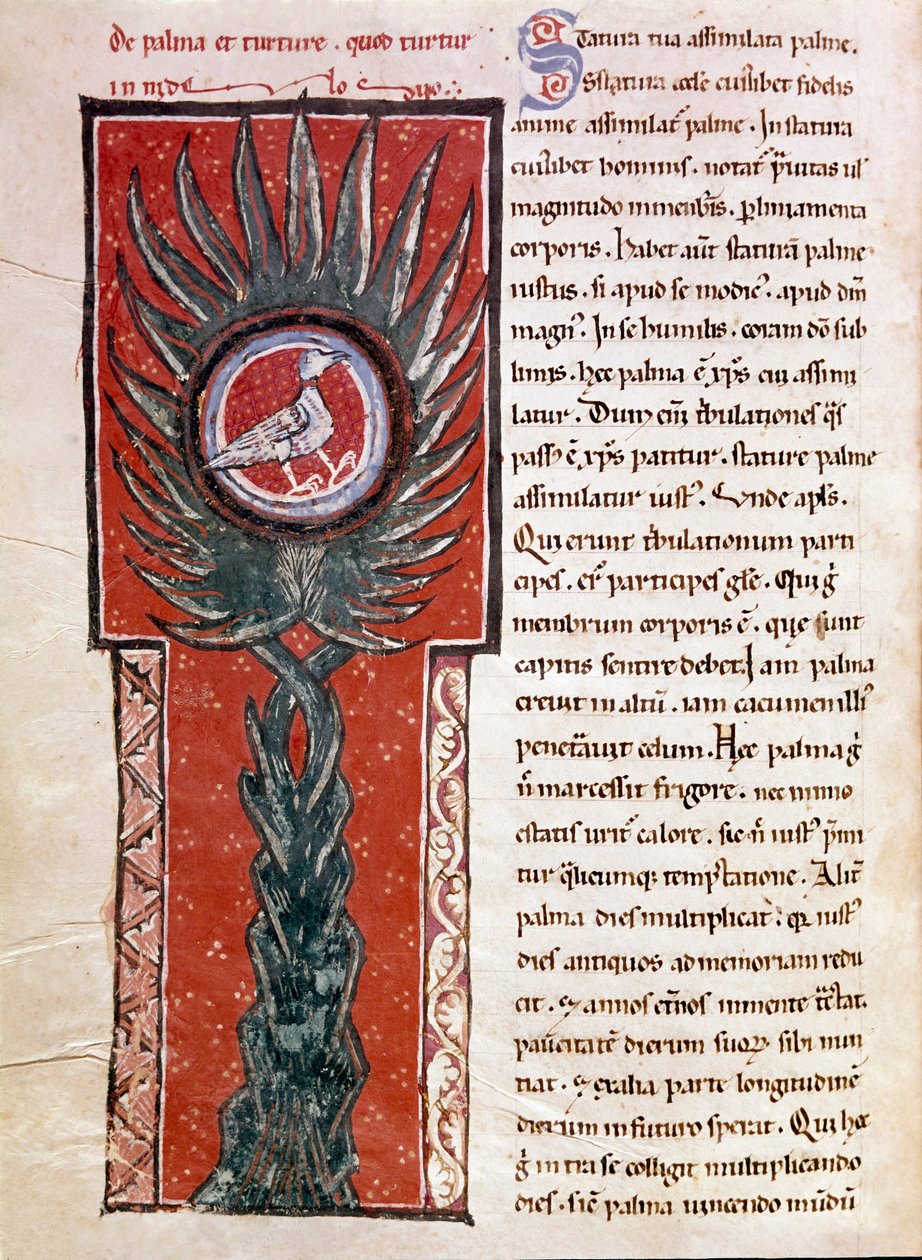 De palma et turture. quod turtur
in nido
Statura tua assimilata palme.
Sstatura eccl'e cuiuslibet fidelis
anime assimilat᷑ palme. In statura
cuiuslibet hominis. notat᷑ p̾uitas ul'
magnitudo in menbris. ꝑ liniamenta
corporis. Habet aut̅ staturā palme
iustus. si apud se modic⁹. apud dn̅m
magn⁹. In se humilis. coram dō sub
limis. hec palma ē xp̅s cui assimi
latur. Dum eni̅ t̾bulationes q̾s
pass⁹ ē xp̅s patitur. stature palme
assimilatur iust⁹. Unde apl̅s.
Qui erunt t̾bulationum parti
cipes. er̅ participes gl̅e. Qui g̾
membrum corporis ē. que sunt
capitis sentire debet. Iam palma
creuit in altū. iam cacumen illi⁹
penet̾auit celum. Hec palma g̾
n̅ marcessit frigore. nec nimio
estatis urit᷑ calore. sic n̅ iust⁹ p̾mi
tur q̾licumq; temptatione. Alit̅
palma dies multiplicat. q̾ iust⁹
dies antiquos ad memoriam redu
cit. & annos et̅nos in mente t̾ctat.
paucitatē dierum suoꝝ sibi nun
tiat. & ex alia parte longitudinē
dierum in futuro sperat. Qui hec
g̾ intra se colligit multiplicando
dies. sic̅ palma uincendo mūdū